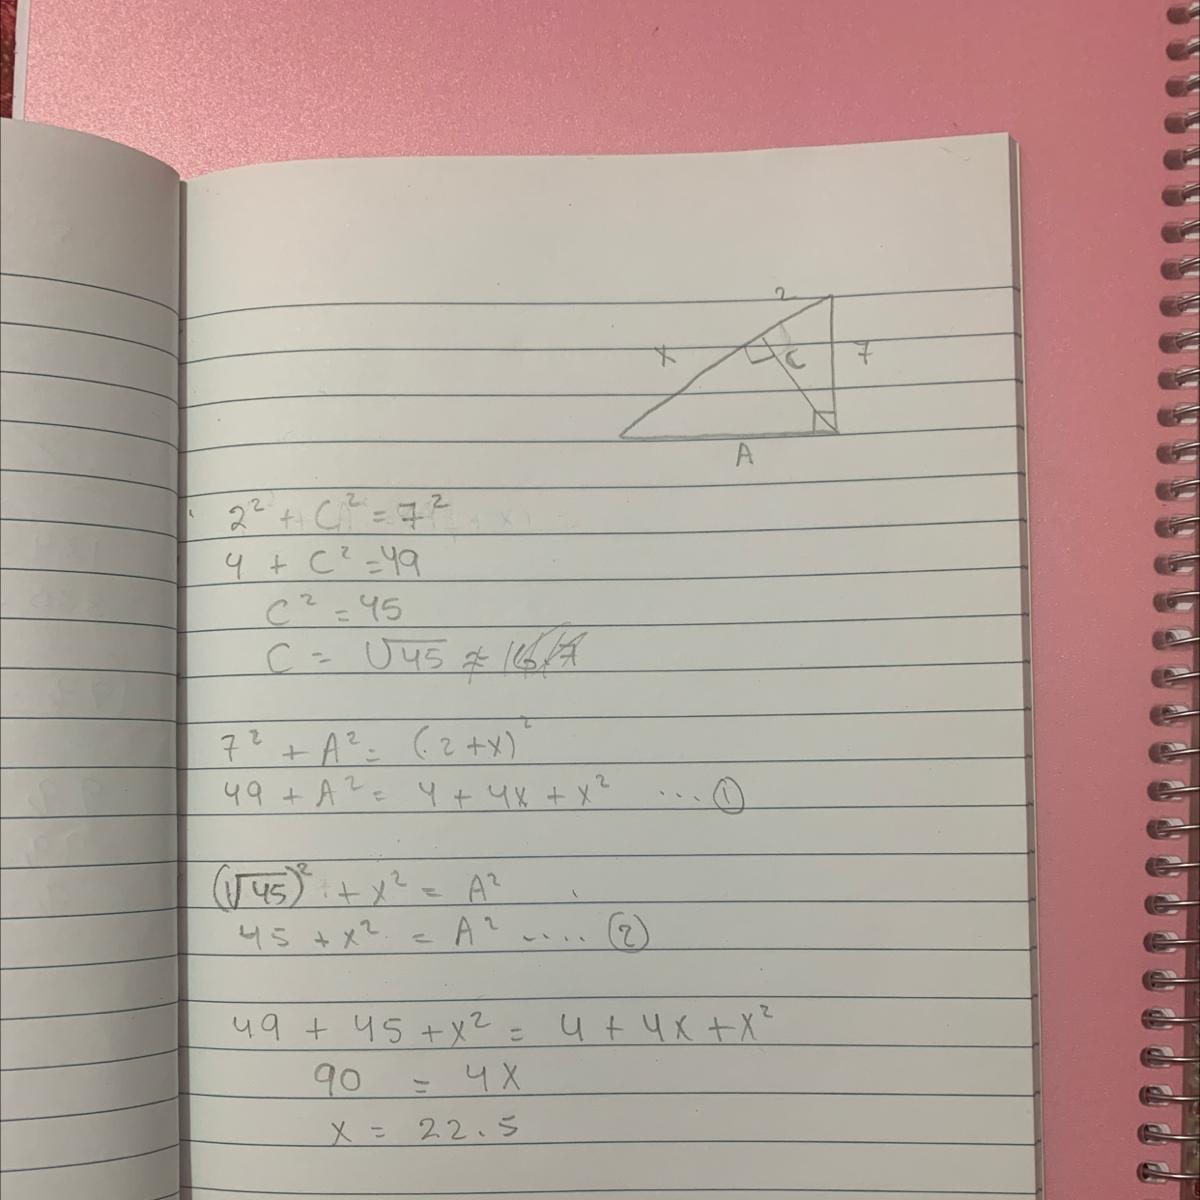 2
x
C
7
A
2² + C² = 7²
4 + C² = 49
C² = 45
C = √45
7² + A² = (2 + x)²
49 + A² = 4 + 4x + x² ... ①
(√45)² + x² = A²
45 + x² = A² .... ②
49 + 45 + x² = 4 + 4x + x²
90 = 4x
x = 22.5